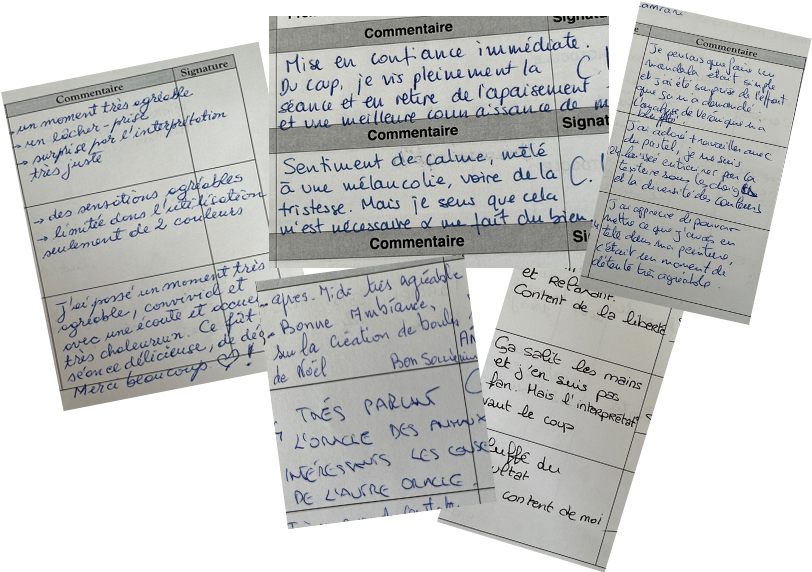 Commentaire
Signature
- un moment très agréable
→ un lâcher-prise
→ surprise par l'interprétation
très juste
→ des sensations agréables
→ limitée dans l'utilisation
seulement de 2 couleurs
J'ai passé un moment très
agréable, convivial et
avec une écoute et accueil
très chaleureux. Ce fût
séance délicieuse, de dég
Merci beaucoup ♡!
Commentaire
Signature
Mise en confiance immédiate.
Du coup, je vis pleinement la
séance et en retire de l'apaisement
et une meilleure connaissance de m
C.
Commentaire
Signat
Sentiment de calme, mêlé
à une mélancolie, voire de la
tristesse. Mais je sens que cela
m'est nécessaire & me fait du bien.
C.
Commentaire
Si
Commentaire
Je pensais que faire un
mandala était simple
et j'ai été surprise de l'effort
que ça m'a demandé.
L'analyse de Véronique m'a
bluffée
J'ai adoré travailler avec
du pastel, je me suis
laissée entraîner par la
et la diversité des couleurs
J'ai apprécié de pouvoir
mettre ce que j'avais en
tête dans ma peinture,
c'était un moment de
détente très agréable.
apres-Midi très agréable
- Bonne Ambiance,
sur la création de boule
de Noël
TRÉS PARLENT
L'ORACLE DES ANIMAUX
INTÉRESSANTS LES CONSE
DE L'AUTRE ORACLE.
et Relaxant.
Content de la liberté
Ça salit les mains
et j'en suis pas
fan. Mais l'interprétat
vaut le coup
luffé du
ultat
content de moi